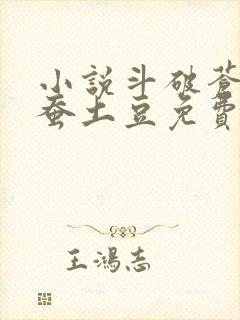 小說斗破蒼
蚕土豆免費
王鴻志